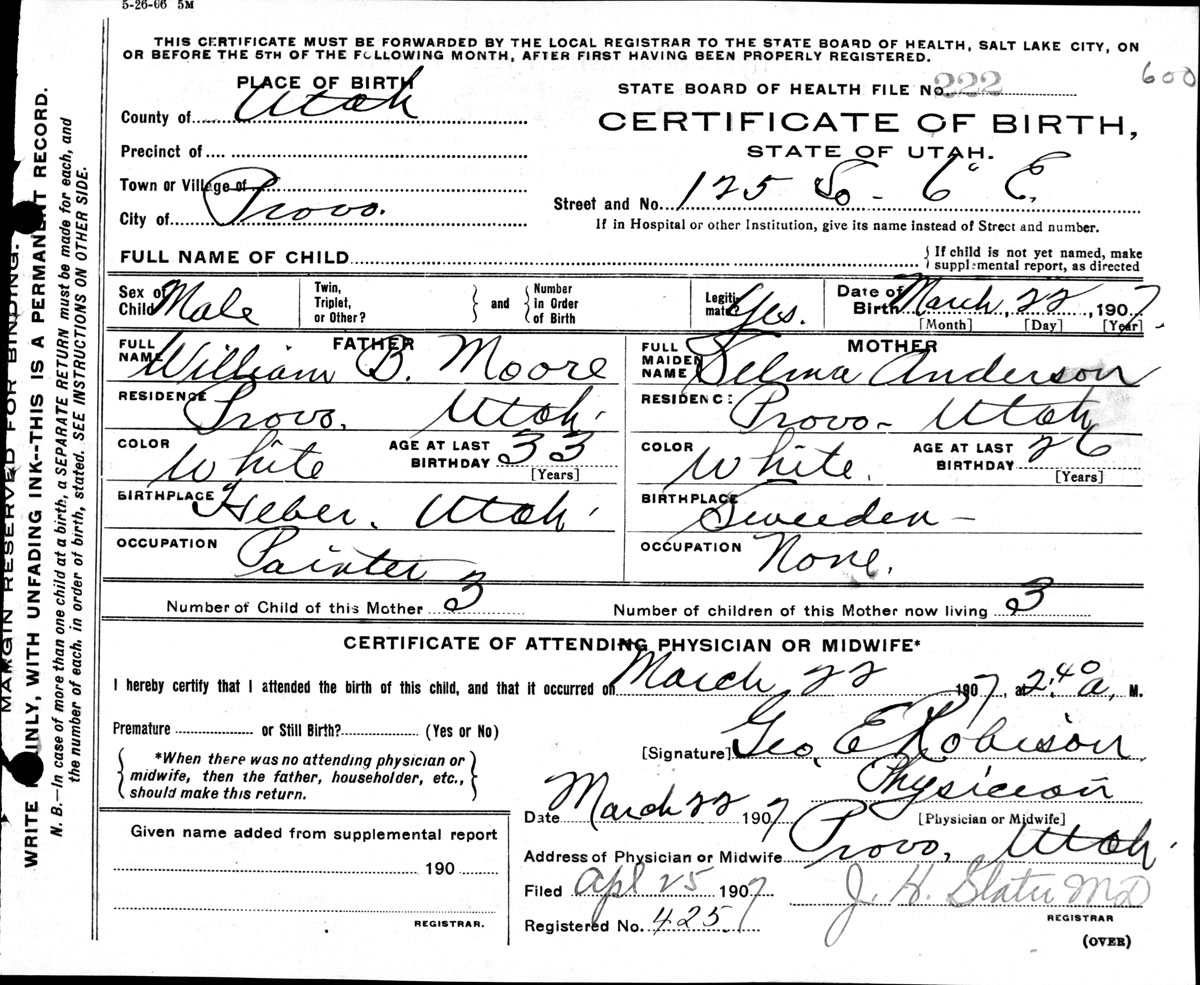 5-26-06 5M
THIS CERTIFICATE MUST BE FORWARDED BY THE LOCAL REGISTRAR TO THE STATE BOARD OF HEALTH, SALT LAKE CITY, ON
OR BEFORE THE 5TH OF THE FOLLOWING MONTH, AFTER FIRST HAVING BEEN PROPERLY REGISTERED.
600
PLACE OF BIRTH
County of Utah
Precinct of
Town or Village of
City of Provo.
STATE BOARD OF HEALTH FILE No. 222
CERTIFICATE OF BIRTH,
STATE OF UTAH.
Street and No. 125 So - 6" E.
If in Hospital or other Institution, give its name instead of Street and number.
FULL NAME OF CHILD
{ If child is not yet named, make
supplemental report, as directed
Sex of Child Male
Twin, Triplet, or Other? } and { Number in Order of Birth
Legitimate Yes.
Date of Birth March 22, 1907.
[Month] [Day] [Year]
FATHER
FULL NAME William B. Moore
RESIDENCE Provo. Utah.
COLOR White
AGE AT LAST BIRTHDAY 33
[Years]
BIRTHPLACE Heber. Utah.
OCCUPATION Painter
MOTHER
FULL MAIDEN NAME Selma Anderson
RESIDENCE Provo - Utah
COLOR White.
AGE AT LAST BIRTHDAY 26
[Years]
BIRTHPLACE Sweeden -
OCCUPATION None.
Number of Child of this Mother 3
Number of children of this Mother now living 3
CERTIFICATE OF ATTENDING PHYSICIAN OR MIDWIFE*
I hereby certify that I attended the birth of this child, and that it occurred on March 22 1907, at 2:40 a, M.
Premature or Still Birth? (Yes or No)
{ *When there was no attending physician or
midwife, then the father, householder, etc.,
should make this return. }
[Signature] Geo. E Robison
Physician
[Physician or Midwife]
Date March 22 1907
Address of Physician or Midwife Provo, Utah.
Given name added from supplemental report
190
REGISTRAR.
Filed Apl 25 1907
Registered No. 425
J. H. Slater MD
REGISTRAR
(OVER)
MARGIN RESERVED FOR BINDING.
WRITE PLAINLY, WITH UNFADING INK--THIS IS A PERMANENT RECORD.
N. B.—In case of more than one child at a birth, a SEPARATE RETURN must be made for each, and
the number of each, in order of birth, stated. SEE INSTRUCTIONS ON OTHER SIDE.